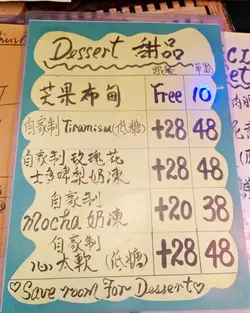 Dessert 甜品
芒果布甸 Free 10
自家制 Tiramisu (低糖) +28 48
自家制 玫瑰花
士多啤梨奶凍 +28 48
自家制
Mocha 奶凍 +20 38
自家制
心太軟 (低糖) +28 48
Save room For Dessert